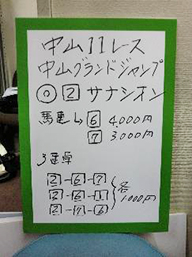 中山11レース
中山グランドジャンプ
◎ 2 サナシオン
馬連 ↳ 6 4,000円
7 3,000円
3連単
2-6-7
2-6-11
2-7-6
各1000円